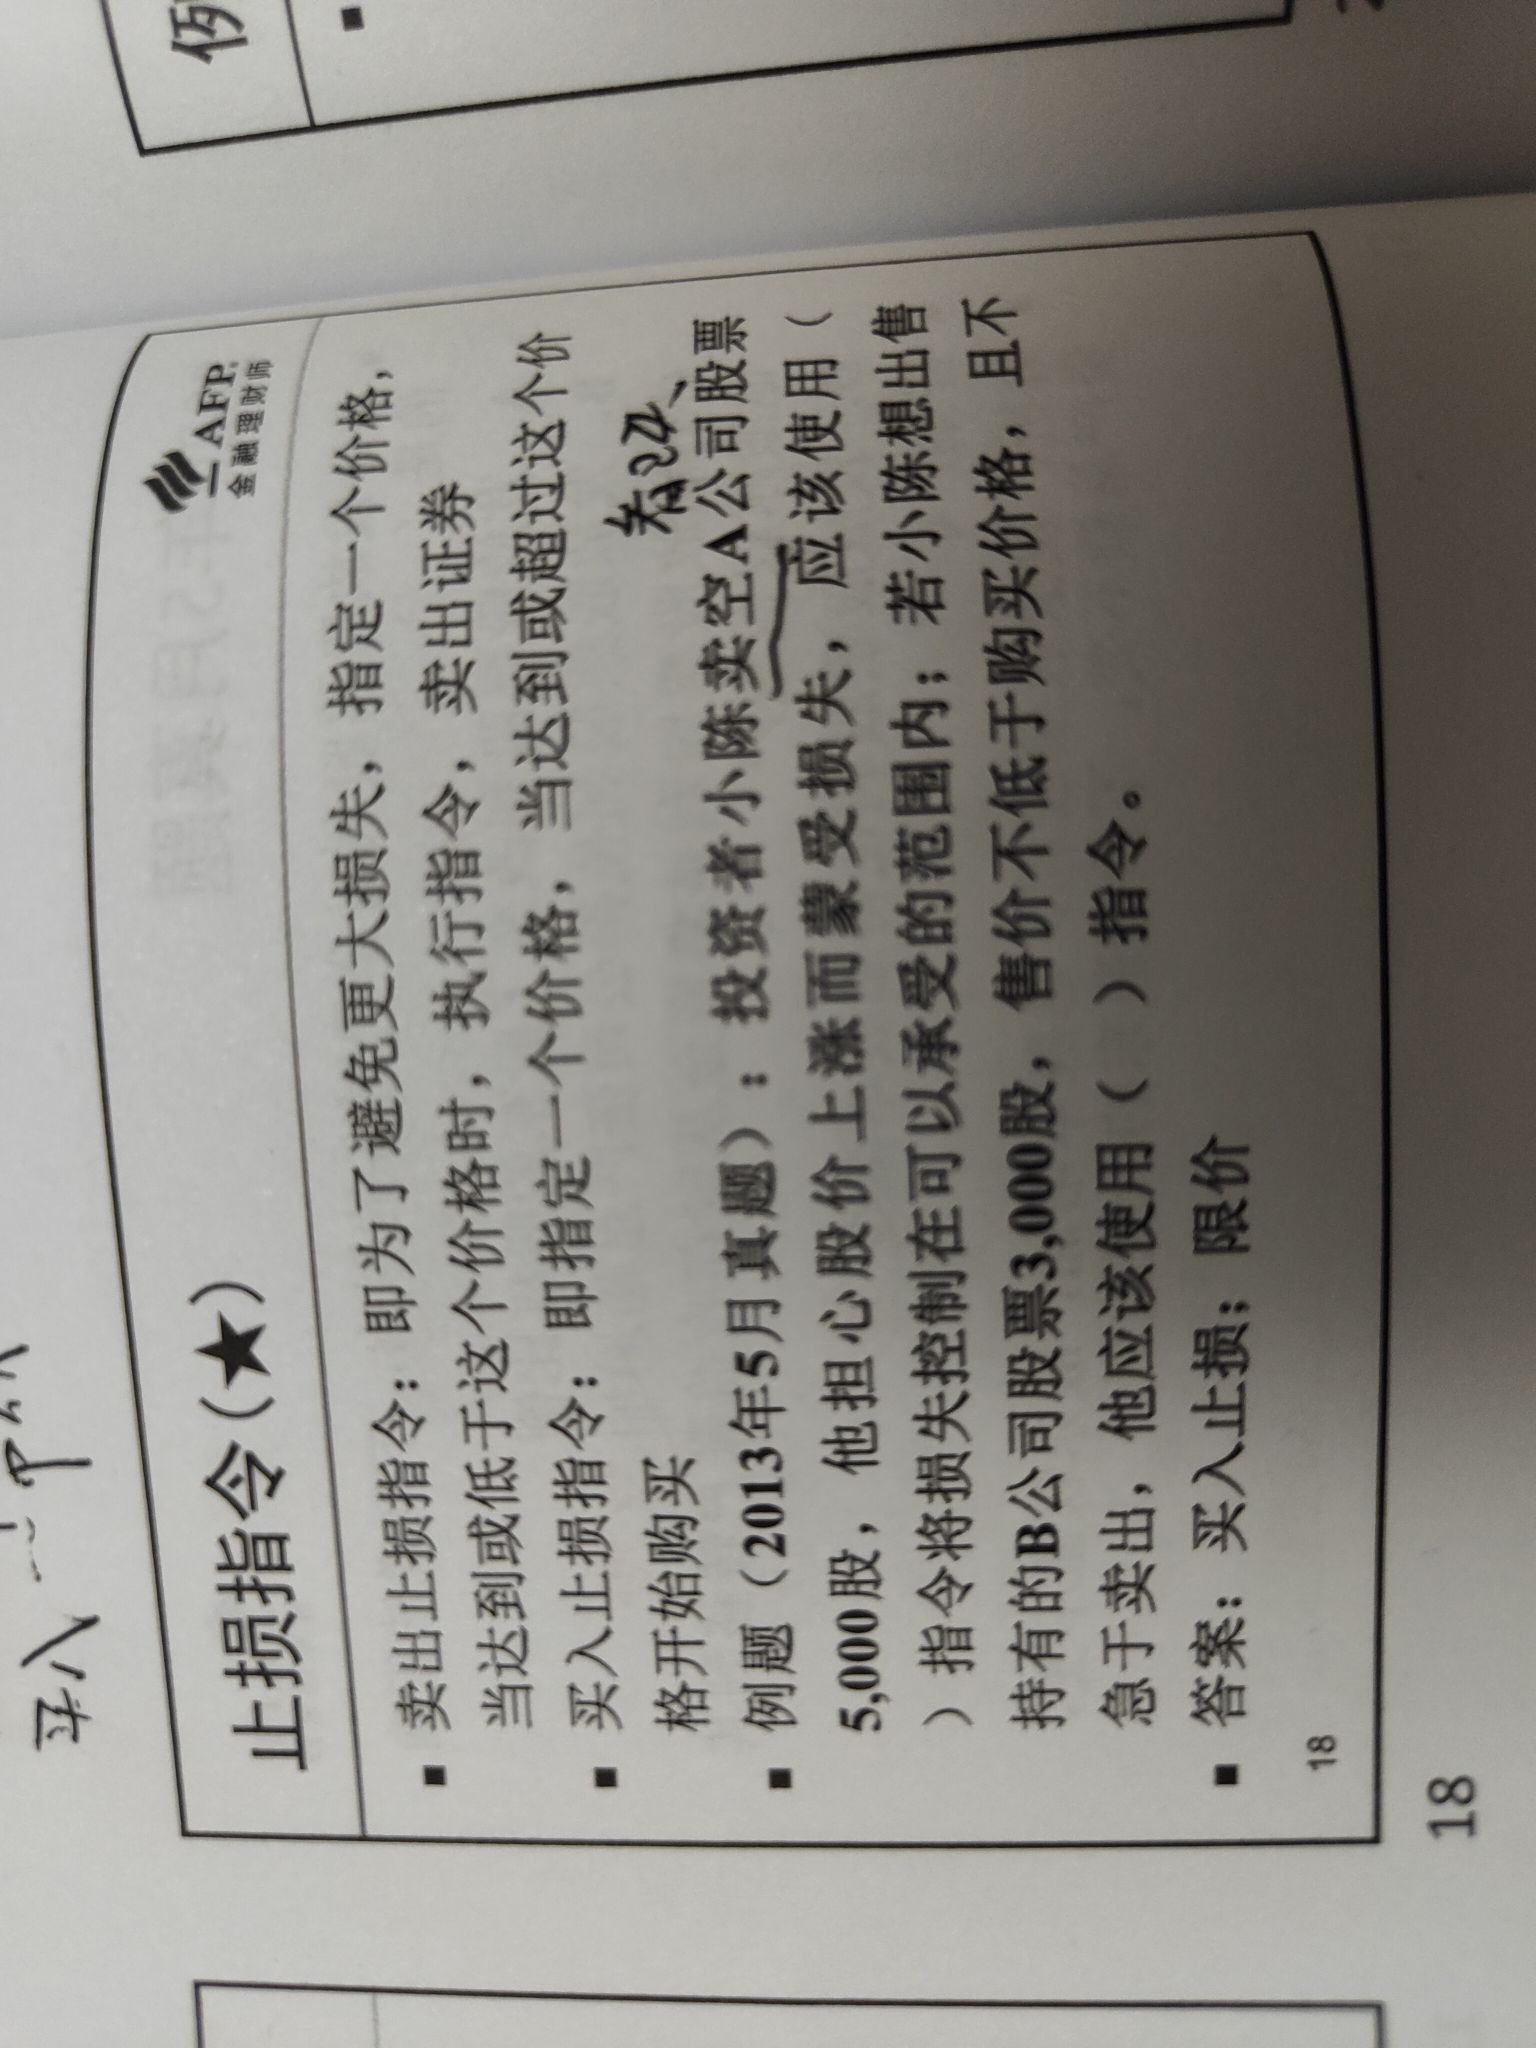 买入
止损指令(★)
AFP
金融理财师
■ 卖出止损指令：即为了避免更大损失，指定一个价格，
当达到或低于这个价格时，执行指令，卖出证券
■ 买入止损指令：即指定一个价格，当达到或超过这个价
格开始购买
看跌
■ 例题（2013年5月真题）：投资者小陈卖空A公司股票
5,000股，他担心股价上涨而蒙受损失，应该使用（
）指令将损失控制在可以承受的范围内；若小陈想出售
持有的B公司股票3,000股，售价不低于购买价格，且不
急于卖出，他应该使用（ ）指令。
■ 答案：买入止损；限价
18
18